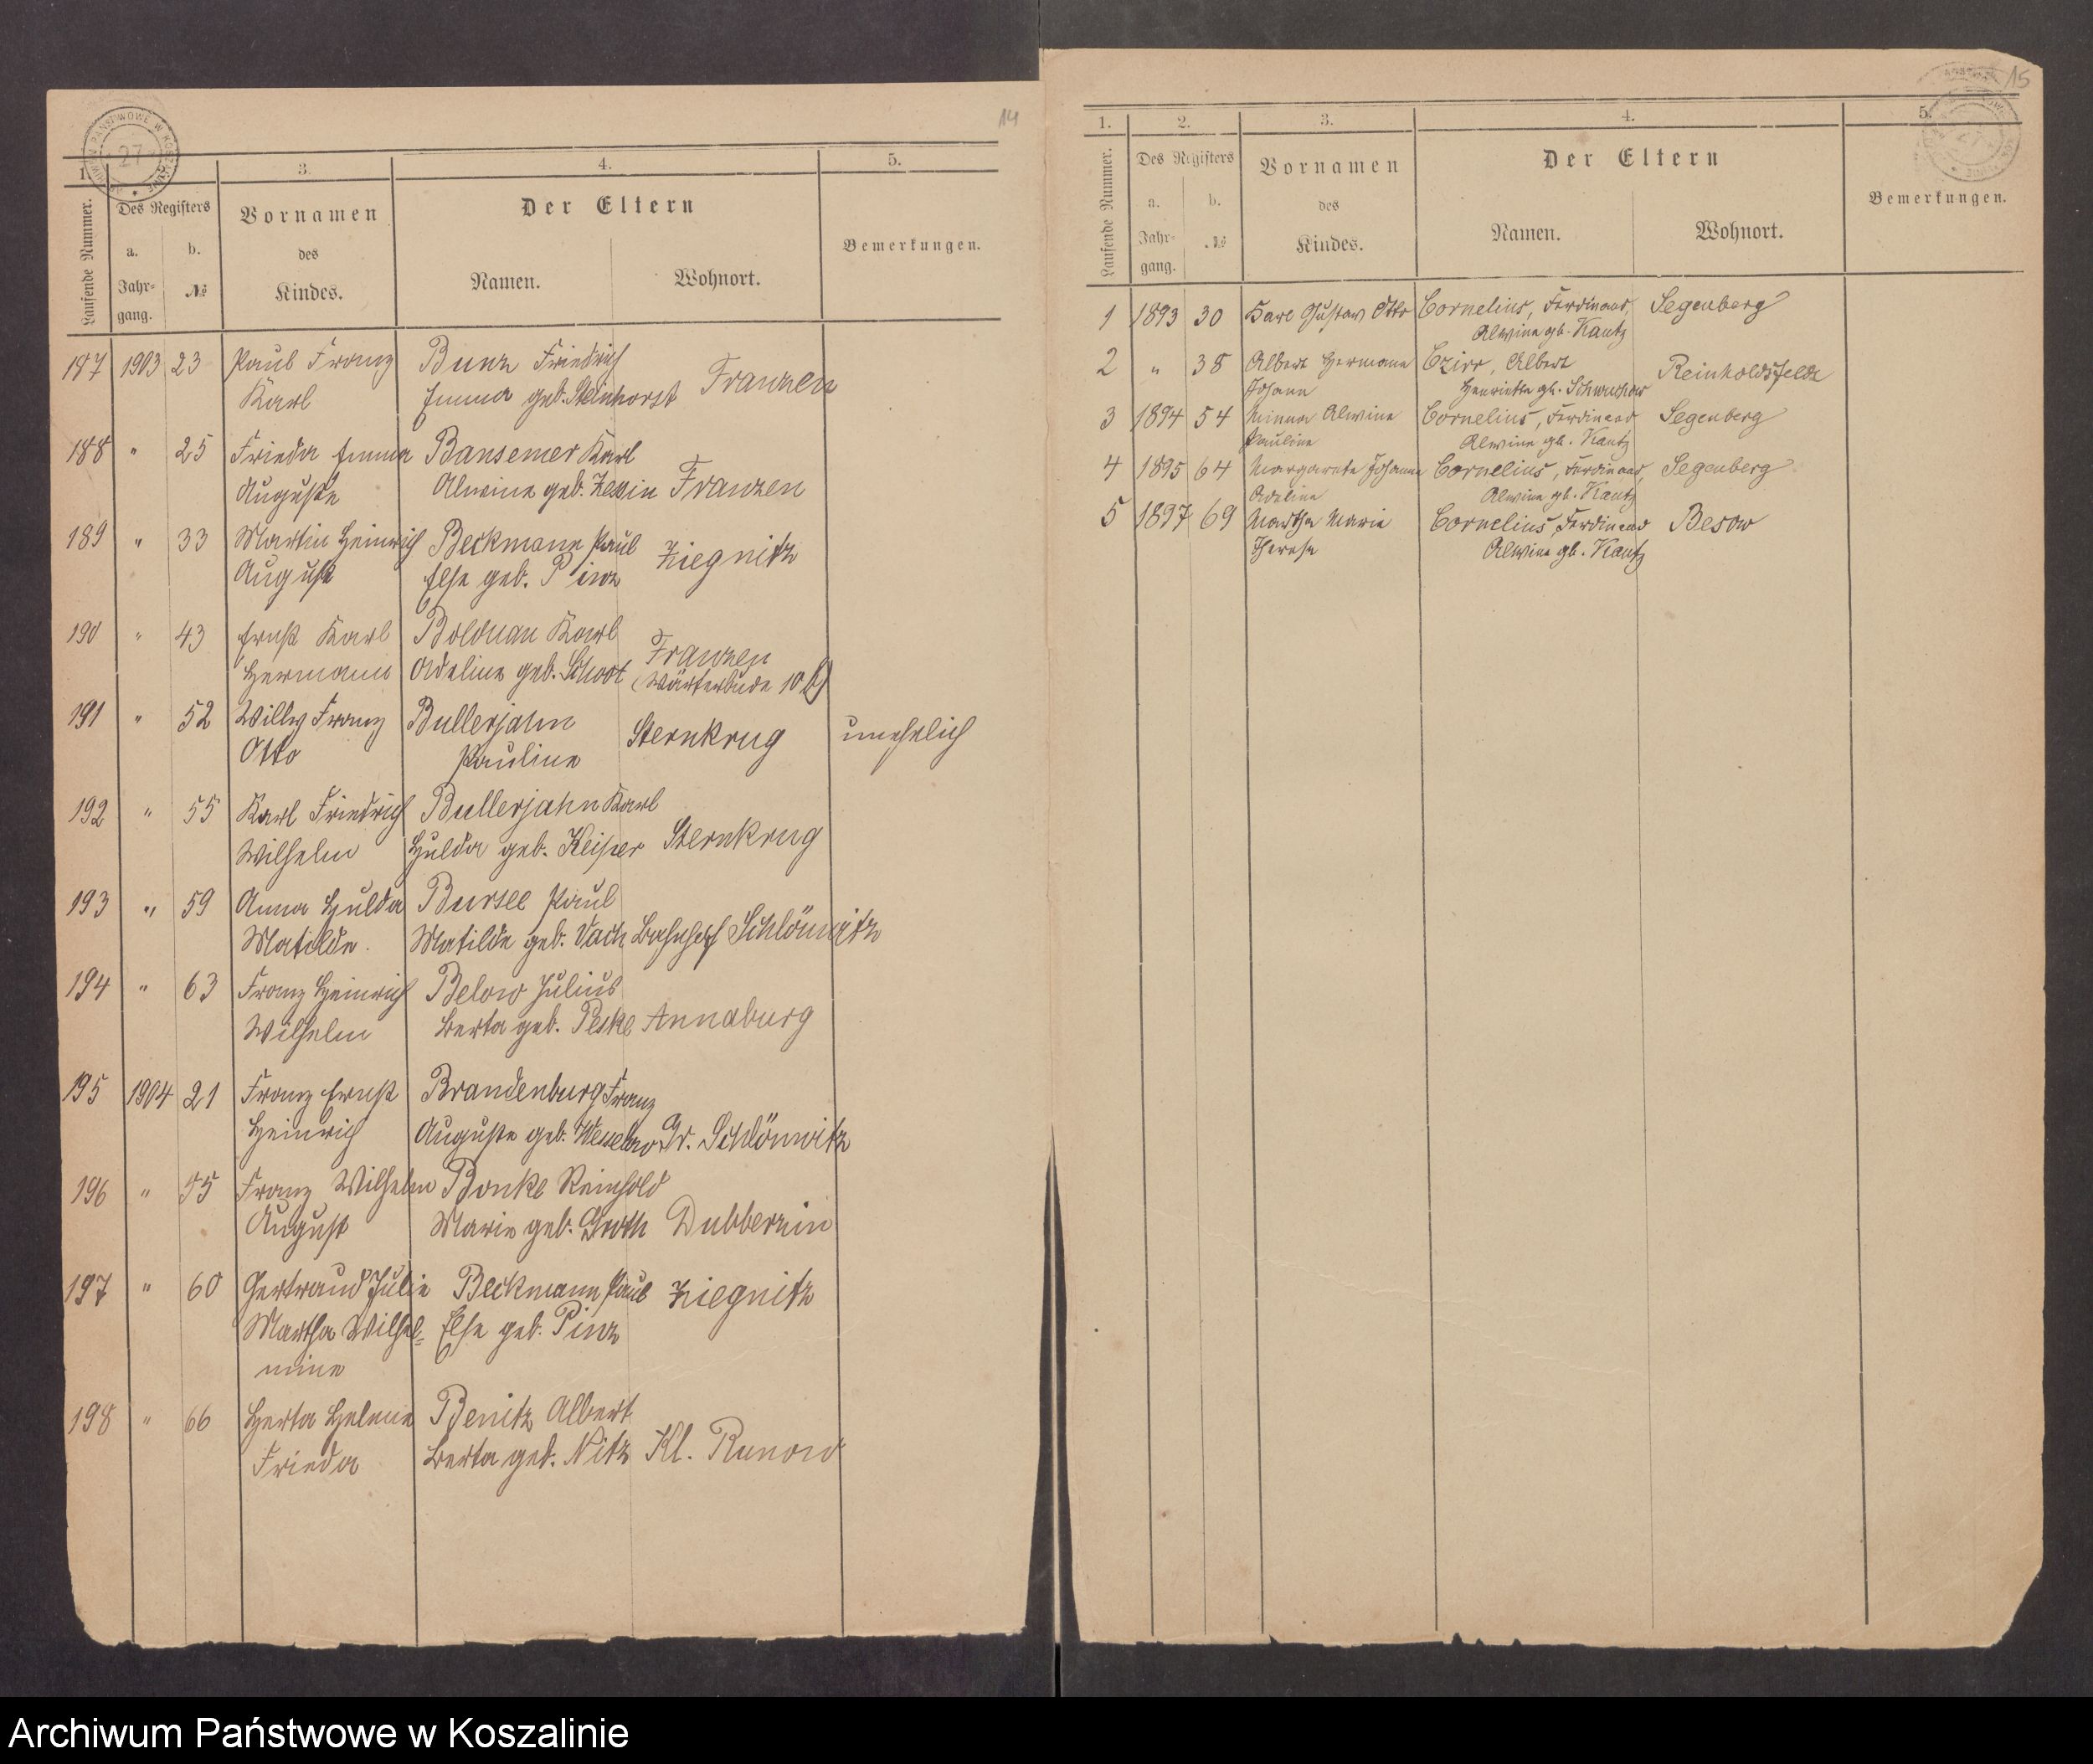 14
1.
3.
4.
5.
Laufende Nummer.
Des Registers
Vornamen
des
Kindes.
Der Eltern
Bemerkungen.
a.
b.
Jahr-
gang.
№
Namen.
Wohnort.
187 1903 23 Paul Franz Bunz Friedrich
Karl Emma geb. Steinhorst Franzen
188 " 25 Frieda Emma Bansemer Karl
Auguste Alwine geb. Franzen
189 " 33 Martin Heinrich Beckmann Paul Ziegnitz
August Else geb. Pinz
190 " 43 Ernst Karl Bolduan Karl Franzen
Hermann Adeline geb. Schoot (Wärterbude 10
191 " 52 Willy Franz Bullerjahn Sternkrug unehelich
Otto Pauline
192 " 55 Karl Friedrich Bullerjahn Karl
Wilhelm Hulda geb. Sternkrug
193 " 59 Anna Hulda Bursee Paul
Matilde. Matilde geb. Vach Bahnhof Schlönwitz
194 " 63 Franz Heinrich Below Julius
Wilhelm Berta geb. Peske Annaburg
195 1904 21 Franz Ernst Brandenburg Franz
Heinrich Auguste geb. Gr. Schlönwitz
196 " 55 Franz Wilhelm Bonke Reinhold
August Marie geb. Groth Dubberzin
197 " 60 Gertraud Julie Beckmann Paul Ziegnitz
Martha Wilhel- Else geb. Pinz
mine
198 " 66 Herta Helene Benitz Albert
Frieda Berta geb. Nitz Kl. Runow
15
1.
2.
3.
4.
5.
Laufende Nummer.
Des Registers
Vornamen
des
Kindes.
Der Eltern
Bemerkungen.
a.
b.
Jahr-
gang.
№
Namen.
Wohnort.
1 1893 30 Karl Gustav Otto Cornelius, Ferdinand, Segenberg
Alwine gb. Kautz
2 " 38 Albert Hermann Czirr, Albert Reinholdsfelde
Johann Henriette gb.
3 1894 54 Minna Alwine Cornelius, Ferdinand Segenberg
Pauline Alwine gb. Kautz
4 1895 64 Margarete Johanna Cornelius, Ferdinand, Segenberg
Adeline Alwine gb. Kautz
5 1897 69 Martha Marie Cornelius, Ferdinand Besow
Therese Alwine gb. Kautz
Archiwum Państwowe w Koszalinie